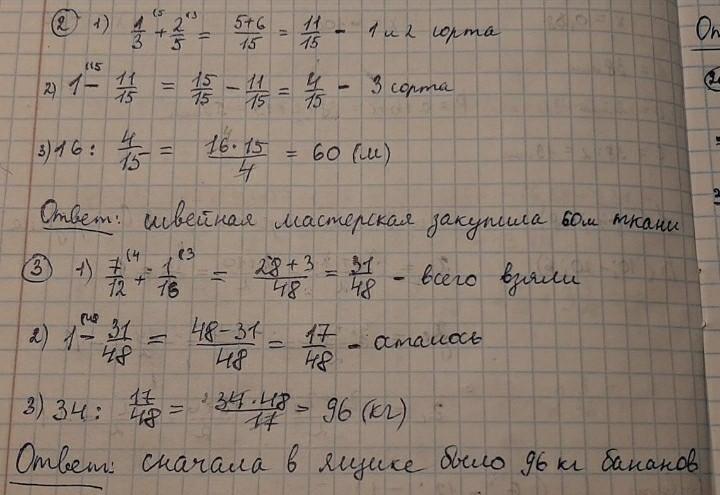 2) 1) 1/3 (5 + 2/5 (3 = 5+6/15 = 11/15 - 1 и 2 сорта
2) 1 (15 - 11/15 = 15/15 - 11/15 = 4/15 - 3 сорта
3) 16 : 4/15 = 16·15/4 = 60 (м)
Ответ: швейная мастерская закупила 60м ткани
3) 1) 7/12 (4 + 1/16 (3 = 28+3/48 = 31/48 - всего взяли
2) 1 (48 - 31/48 = 48-31/48 = 17/48 - осталось
3) 34 : 17/48 = 34·48/17 = 96 (кг)
Ответ: сначала в ящике было 96 кг бананов